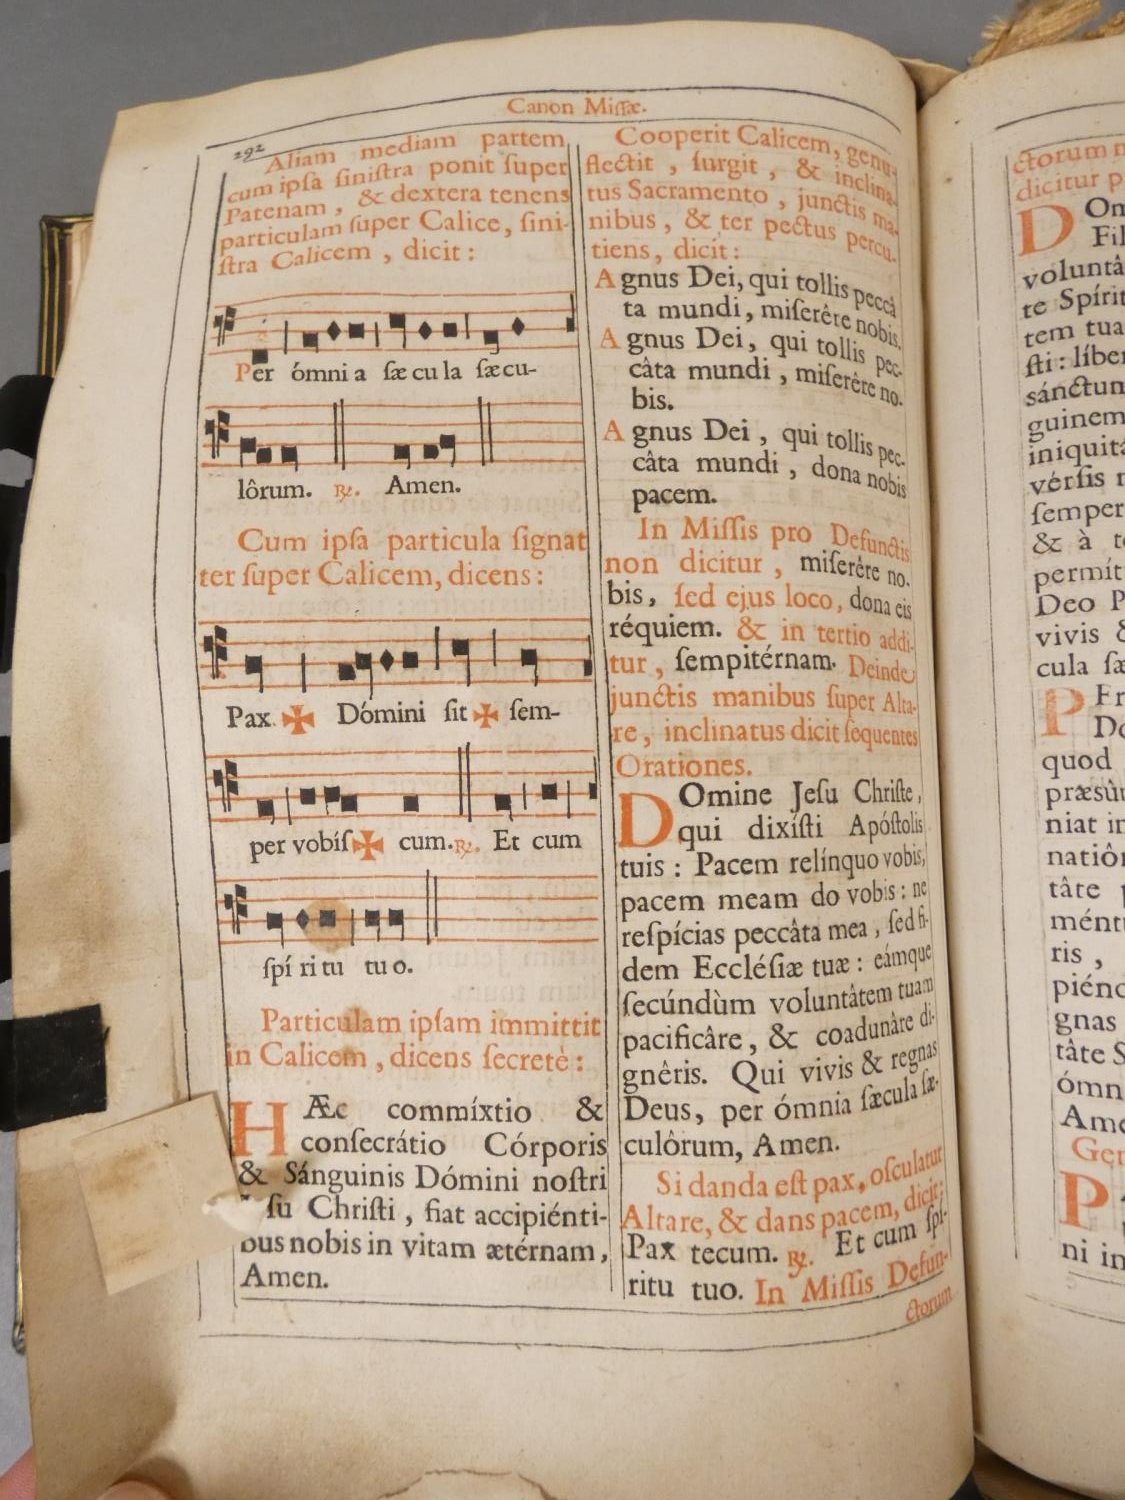 Canon Missæ.
292
Aliam mediam partem
cum ipſa ſiniſtra ponit ſuper
Patenam, & dextera tenens
particulam ſuper Calice, ſini-
ſtra Calicem, dicit:
Per ómnia ſæcula ſæcu-
lôrum. ℟. Amen.
Cum ipſa particula ſignat
ter ſuper Calicem, dicens:
Pax ✠ Dómini ſit ✠ ſem-
per vobiſ ✠ cum. ℟. Et cum
ſpíritu tuo.
Particulam ipſam immittit
in Calicem, dicens ſecretè:
HÆc commíxtio &
conſecrátio Córporis
& Sánguinis Dómini noſtri
ſu Chriſti, fiat accipiénti-
bus nobis in vitam ætérnam,
Amen.
Cooperit Calicem, genu-
flectit, ſurgit, & inclina-
tus Sacramento, junctis ma-
nibus, & ter pectus percu-
tiens, dicit:
Agnus Dei, qui tollis peccâ
ta mundi, miſerêre nobis.
Agnus Dei, qui tollis pec-
câta mundi, miſerêre no-
bis.
Agnus Dei, qui tollis pec-
câta mundi, dona nobis
pacem.
In Miſſis pro Defunctis
non dicitur, miſerêre no-
bis, ſed ejus loco, dona eis
réquiem. & in tertio addi-
tur, ſempitérnam. Deinde
junctis manibus ſuper Alta-
re, inclinatus dicit ſequentes
Orationes.
DOmine Jeſu Chriſte,
qui dixíſti Apóſtolis
tuis: Pacem relínquo vobis,
pacem meam do vobis: ne
reſpícias peccâta mea, ſed fi-
dem Eccléſiæ tuæ: eámque
ſecúndùm voluntâtem tuam
pacificâre, & coadunâre di-
gnêris. Qui vivis & regnas
Deus, per ómnia ſæcula ſæ-
culôrum, Amen.
Si danda eſt pax, oſculatur
Altare, & dans pacem, dicit:
Pax tecum. ℟. Et cum ſpí-
ritu tuo. In Miſſis Defun-
ctorum
ctorum
dicitur
DOm
Fil
voluntâ
te Spírit
tem tua
ſti: líber
sánctum
guinem
iniquitá
vérſis
ſemper
& à
permít
Deo P
vivis &
cula ſæ
PEr
Do
quod
præsû
niat in
natiôn
tâte
ménti
ris,
piénd
gnas
tâte S
ómn
Ame
Gen
P
ni in